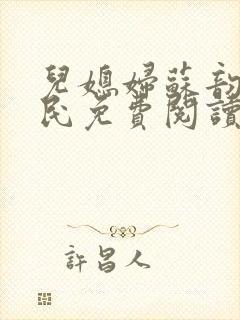 兒媳婦蘇韵
民免費閱讀
許昌人